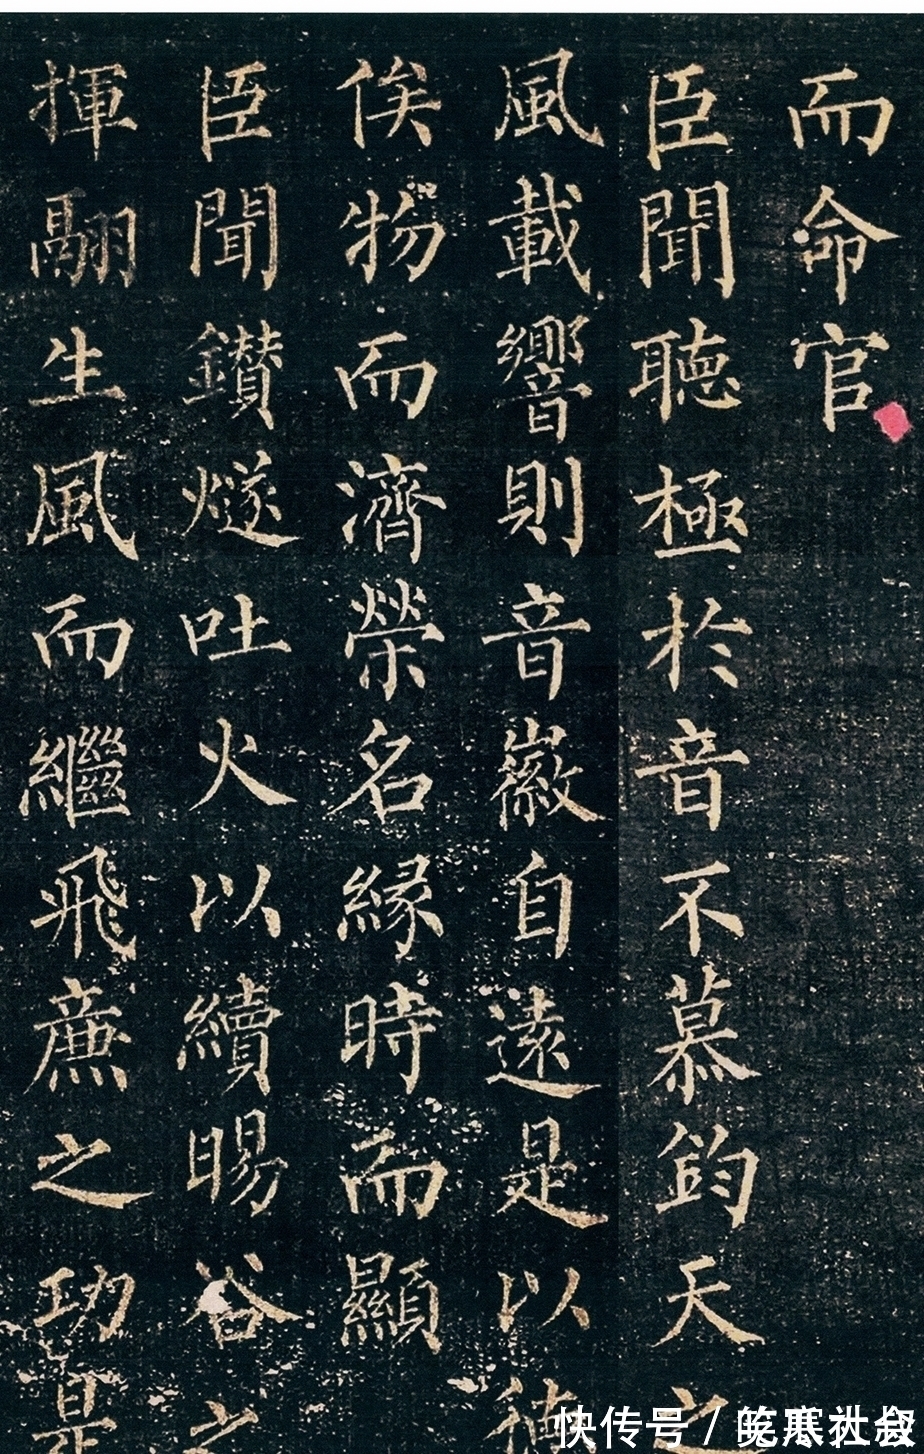 而命官
臣聞聽極於音不慕鈞天之
風載響則音徽自遠是以德
俟物而濟榮名緣時而顯
臣聞鑽燧吐火以續暘谷之
揮翮生風而繼飛廉之功是
快传号 /